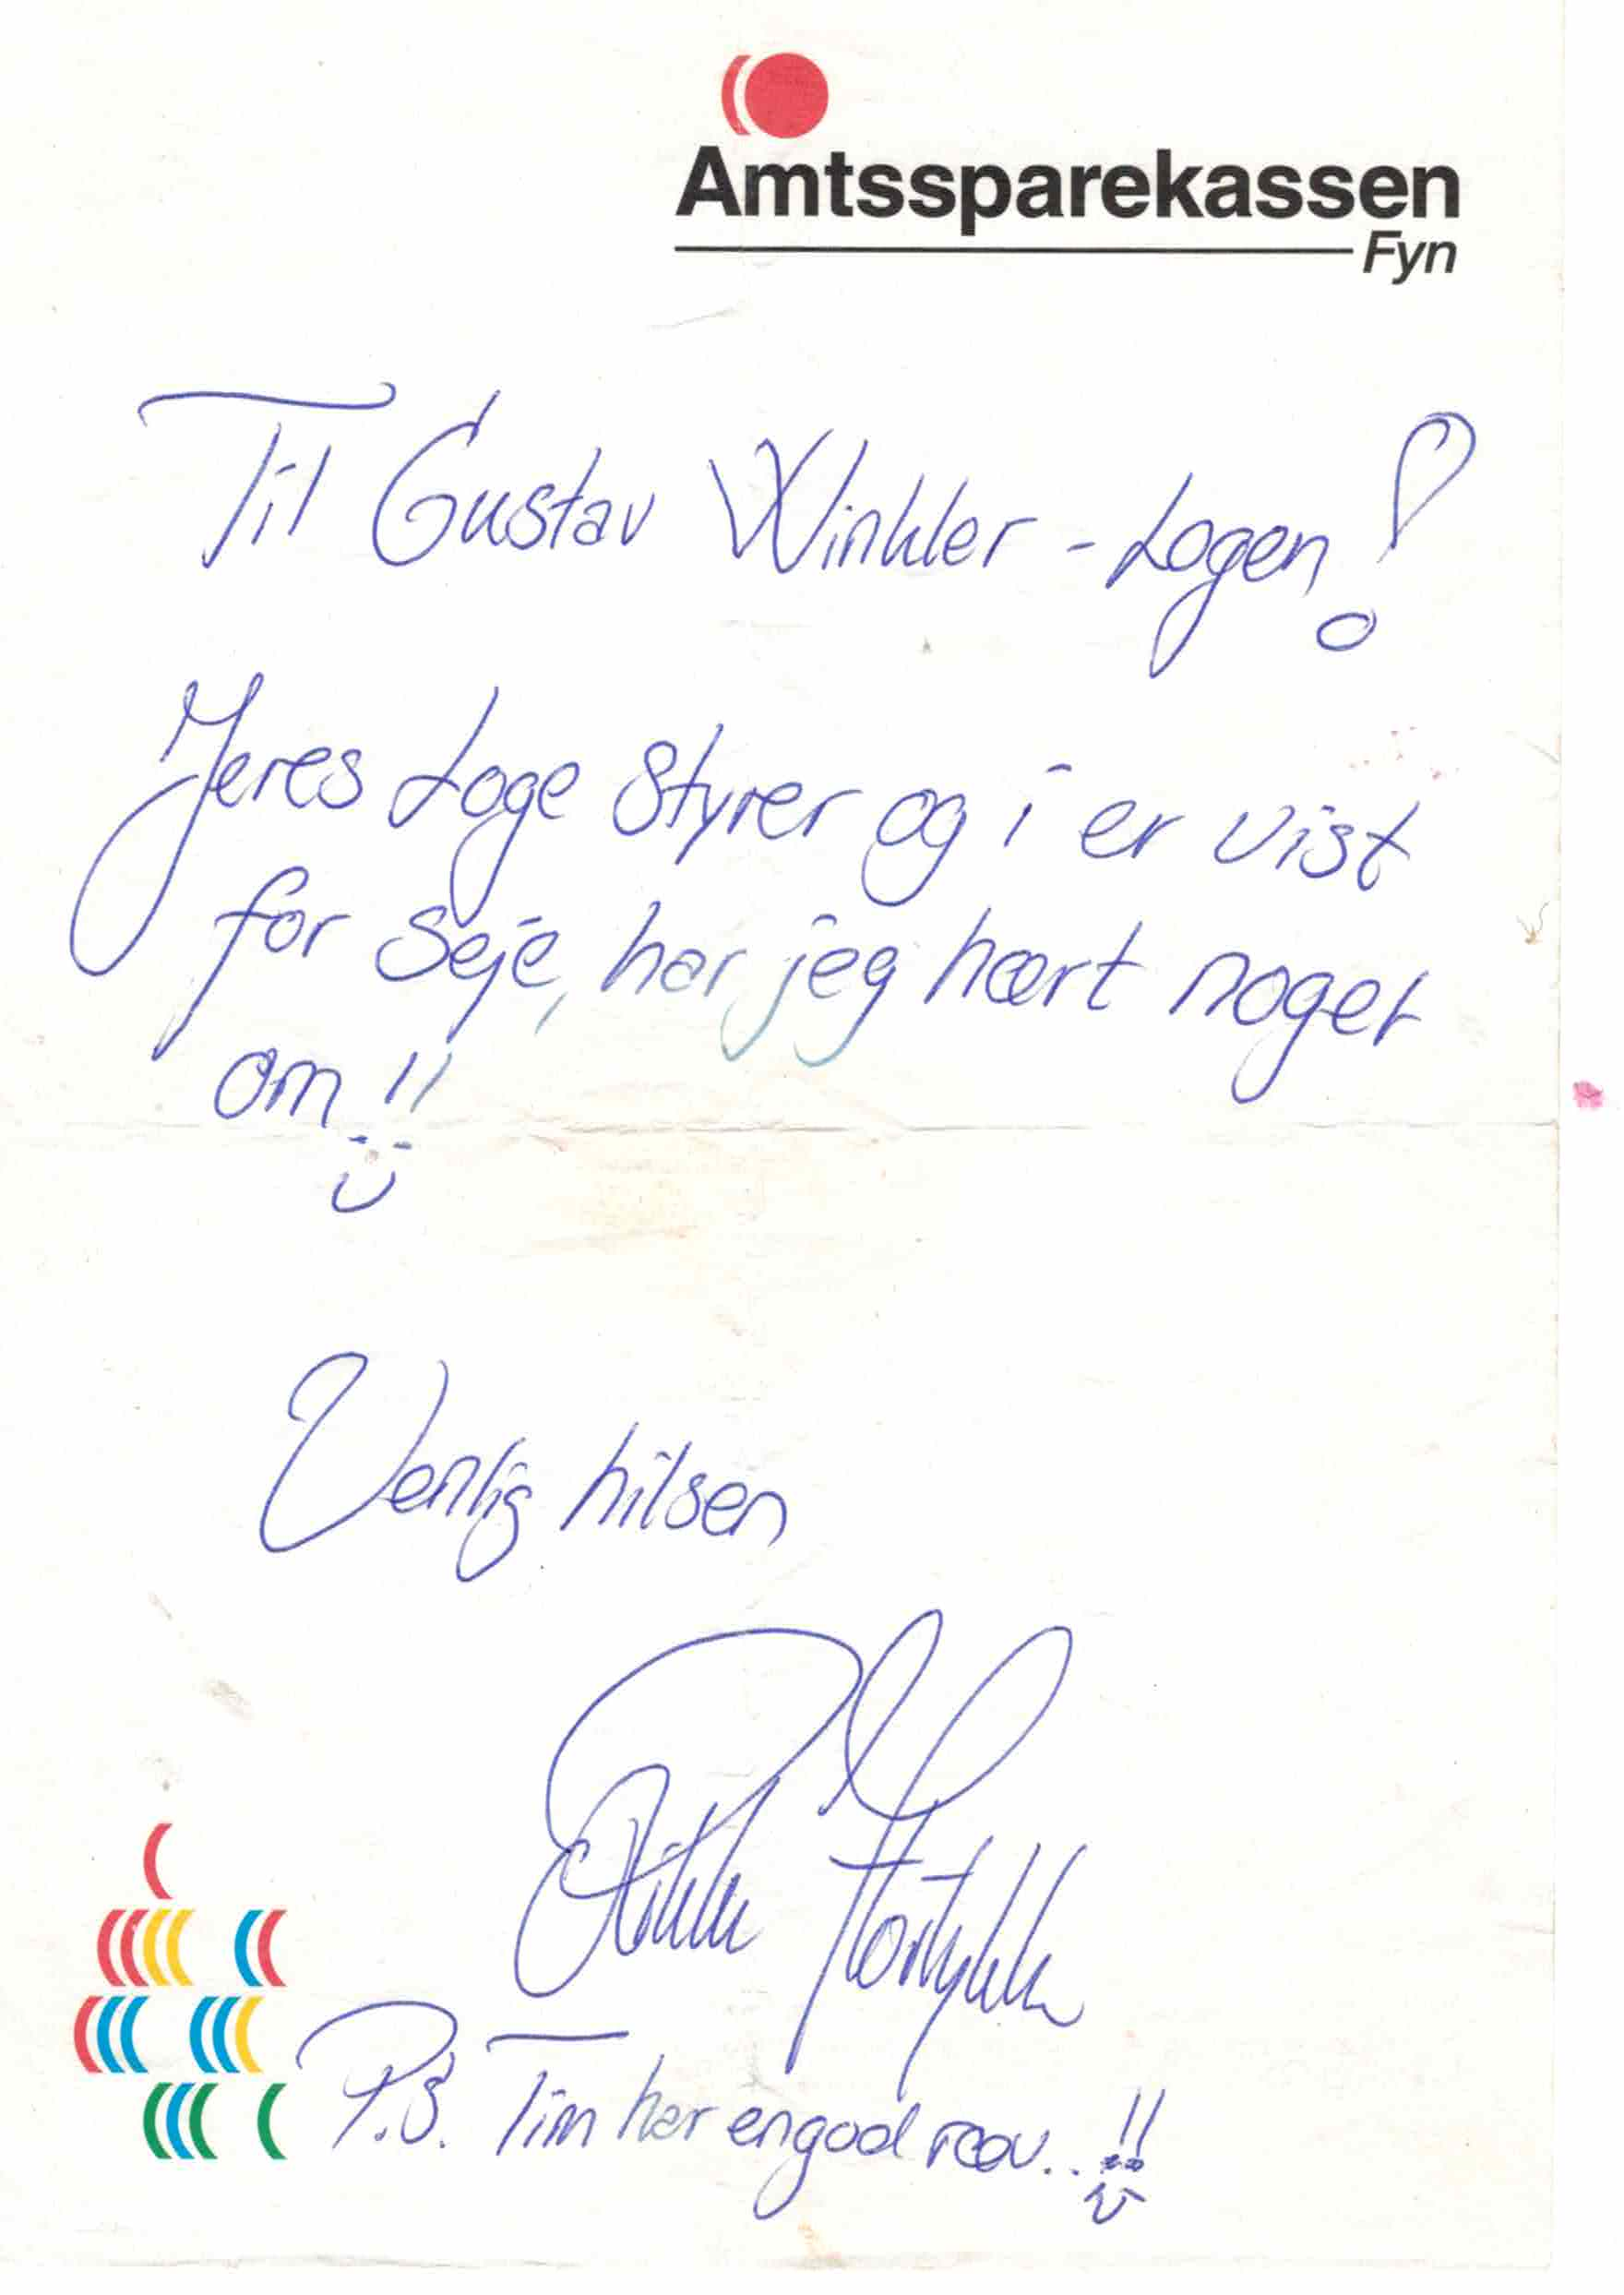 Amtssparekassen
Fyn
Til Gustav Winkler - Logen!
Jeres Loge Styrer og i er vist
for seje, har jeg hørt noget
om!!
Venlig hilsen
Rikke Hørlykke
P.S. Tim har en god røv..!!